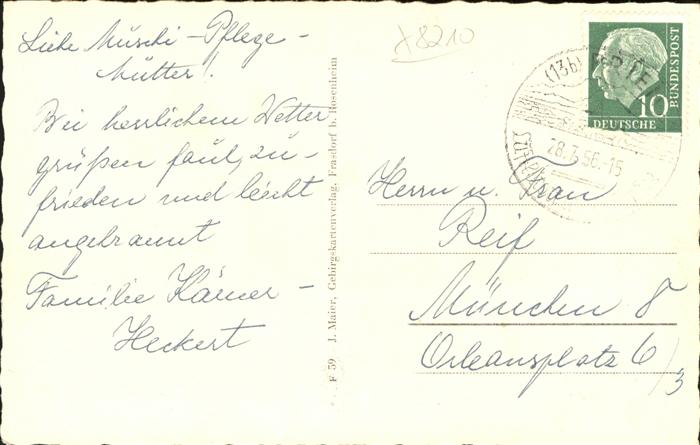 Liebe Muschi-Pflege-
Mütter!
Bei herrlichem Wetter
grüßen faul, zu-
frieden und leicht
angebrannt
Familie Kärner-
Heckert
F 59 J. Maier, Gebirgskartenverlag, Frasdorf b. Rosenheim
8210
(13b)
28.3.56.-15
10
DEUTSCHE
BUNDESPOST
Herrn u. Frau
Reif
München 8
Orleansplatz 6/3